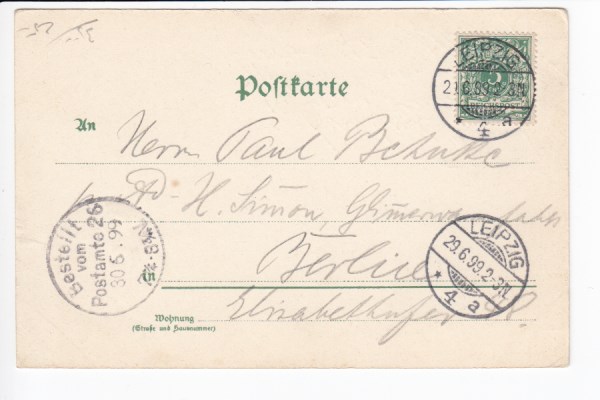 Postkarte
LEIPZIG
29.6.99.2-3N.
REICHSPOST
* 4. a
An Herrn Paul
Ad. H. Simon,
LEIPZIG
29.6.99.2-3N.
* 4. a
Bestellt
vom
Postamte 26
30 6. 99
in Berlin
Elisabethufer
Wohnung
(Straße und Hausnummer)